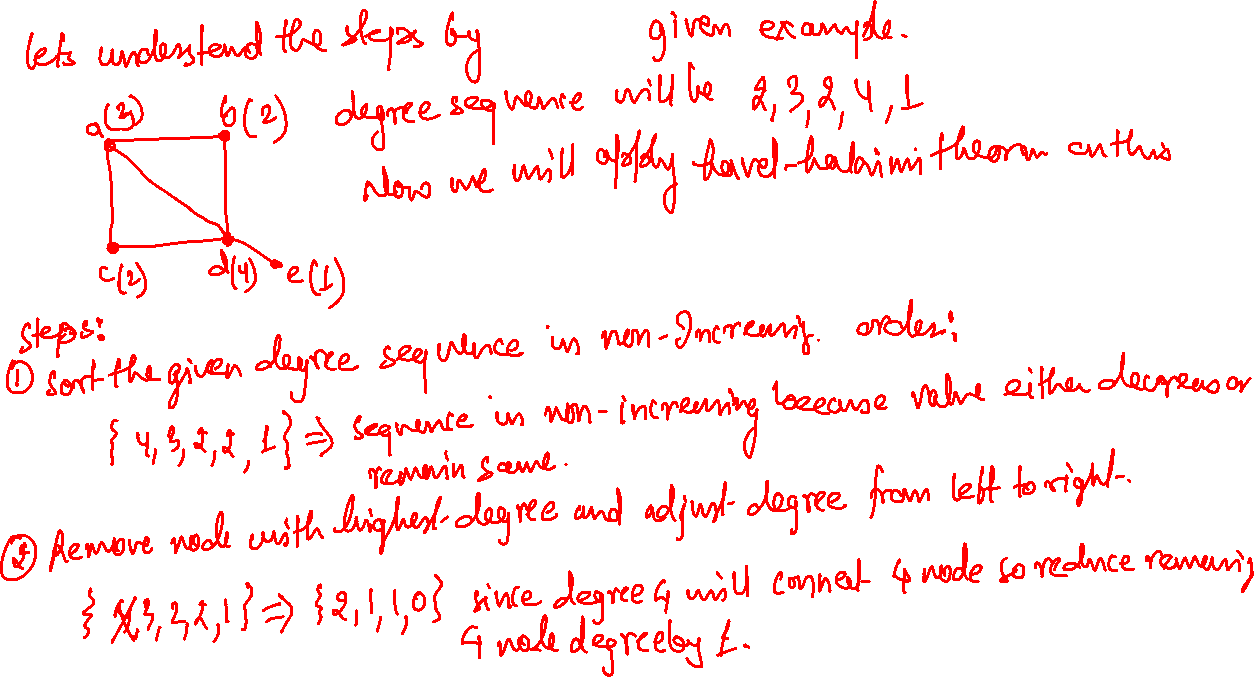 lets understand the steps by given example.
a(3) b(2) degree sequence will be 2,3,2,4,1
Now we will apply havel-hakimi theorm on this
c(2) d(4) e(1)
Steps:
① Sort the given degree sequence in non-Increasing. order:
{ 4, 3, 2, 2, 1} ⇒ sequence in non-increasing because value either decreas or
remain same.
② Remove node with highest-degree and adjust-degree from left to right-.
{ 4, 3, 2, 2, 1} ⇒ {2, 1, 1, 0} since degree 4 will connect 4 node so reduce remaning
4 node degree by 1.